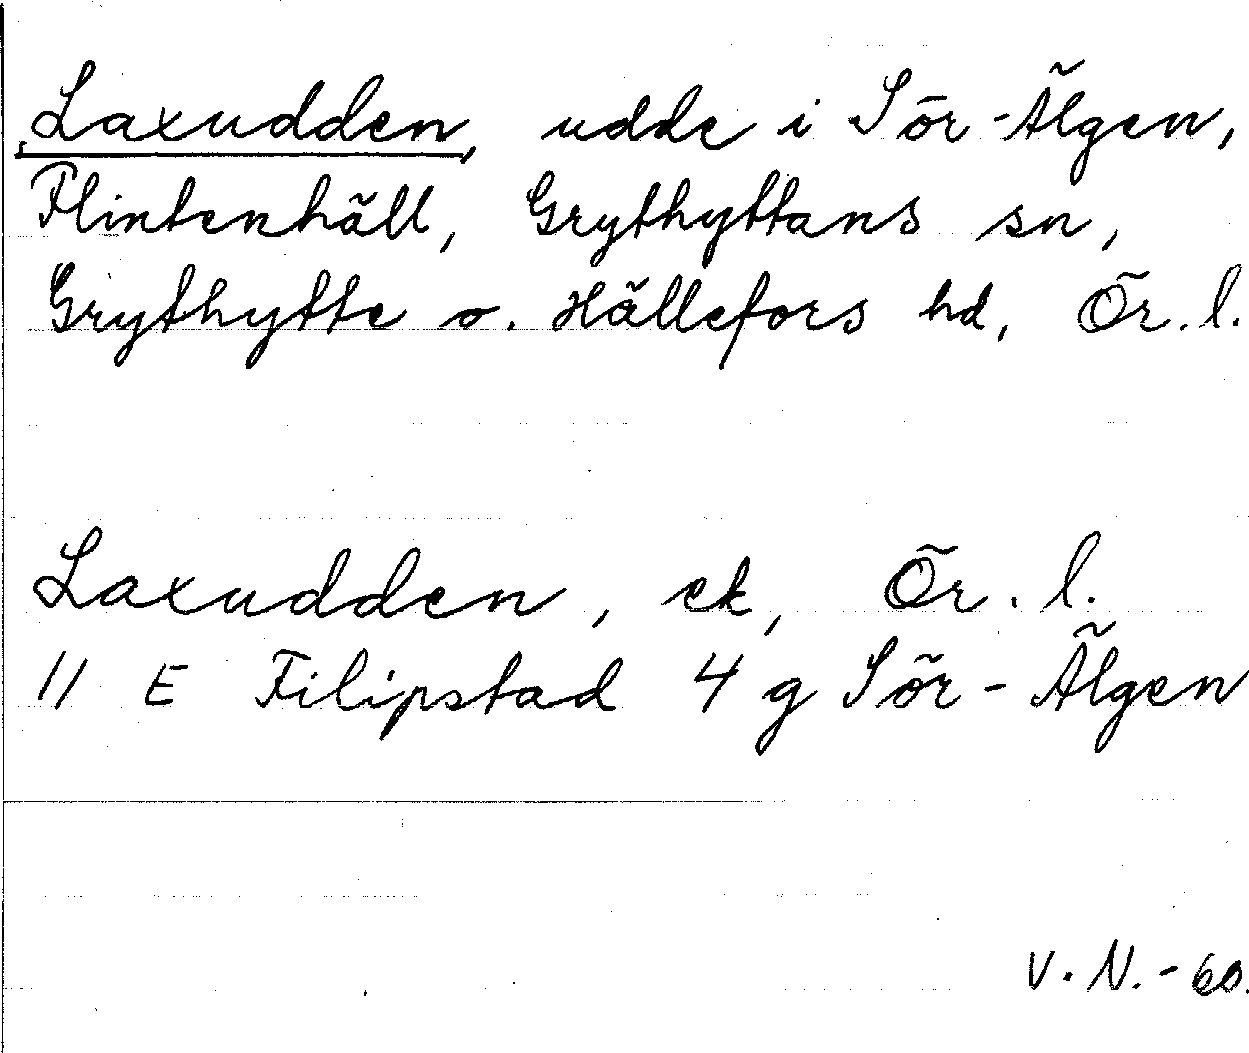 Laxudden, udde i Sör-Älgen,
Flintenhäll, Grythyttans sn,
Grythytte o. Hällefors hd, Ör. l.
Laxudden, ek, Ör. l.
11 E Filipstad 4 g Sör-Älgen
V. N. -60.